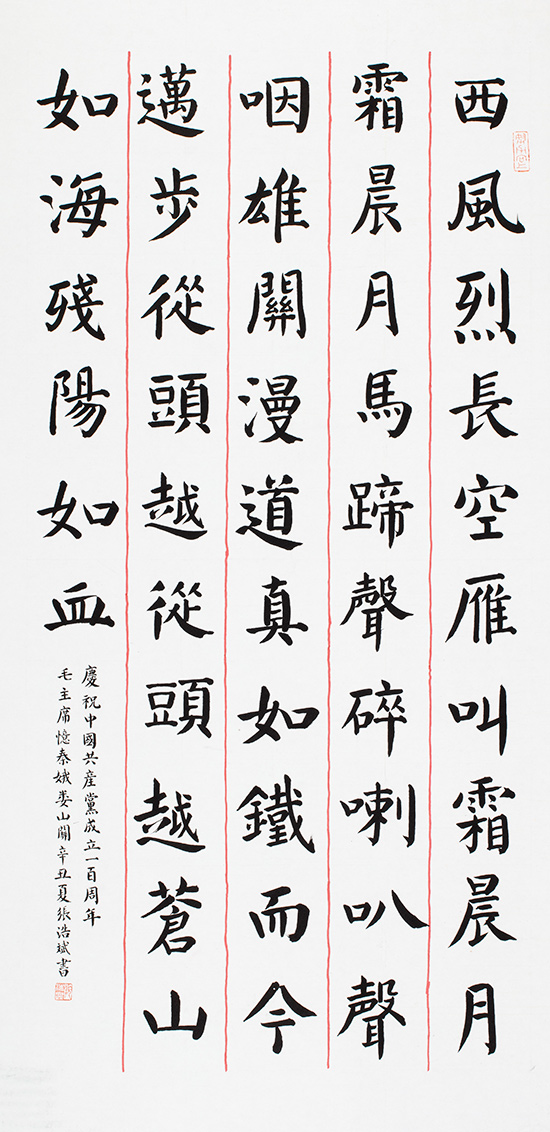 西風烈長空雁叫霜晨月
霜晨月馬蹄聲碎喇叭聲
咽雄關漫道真如鐵而今
邁步從頭越從頭越蒼山
如海殘陽如血
慶祝中國共産黨成立一百周年
毛主席憶秦娥娄山關辛丑夏張浩斌書